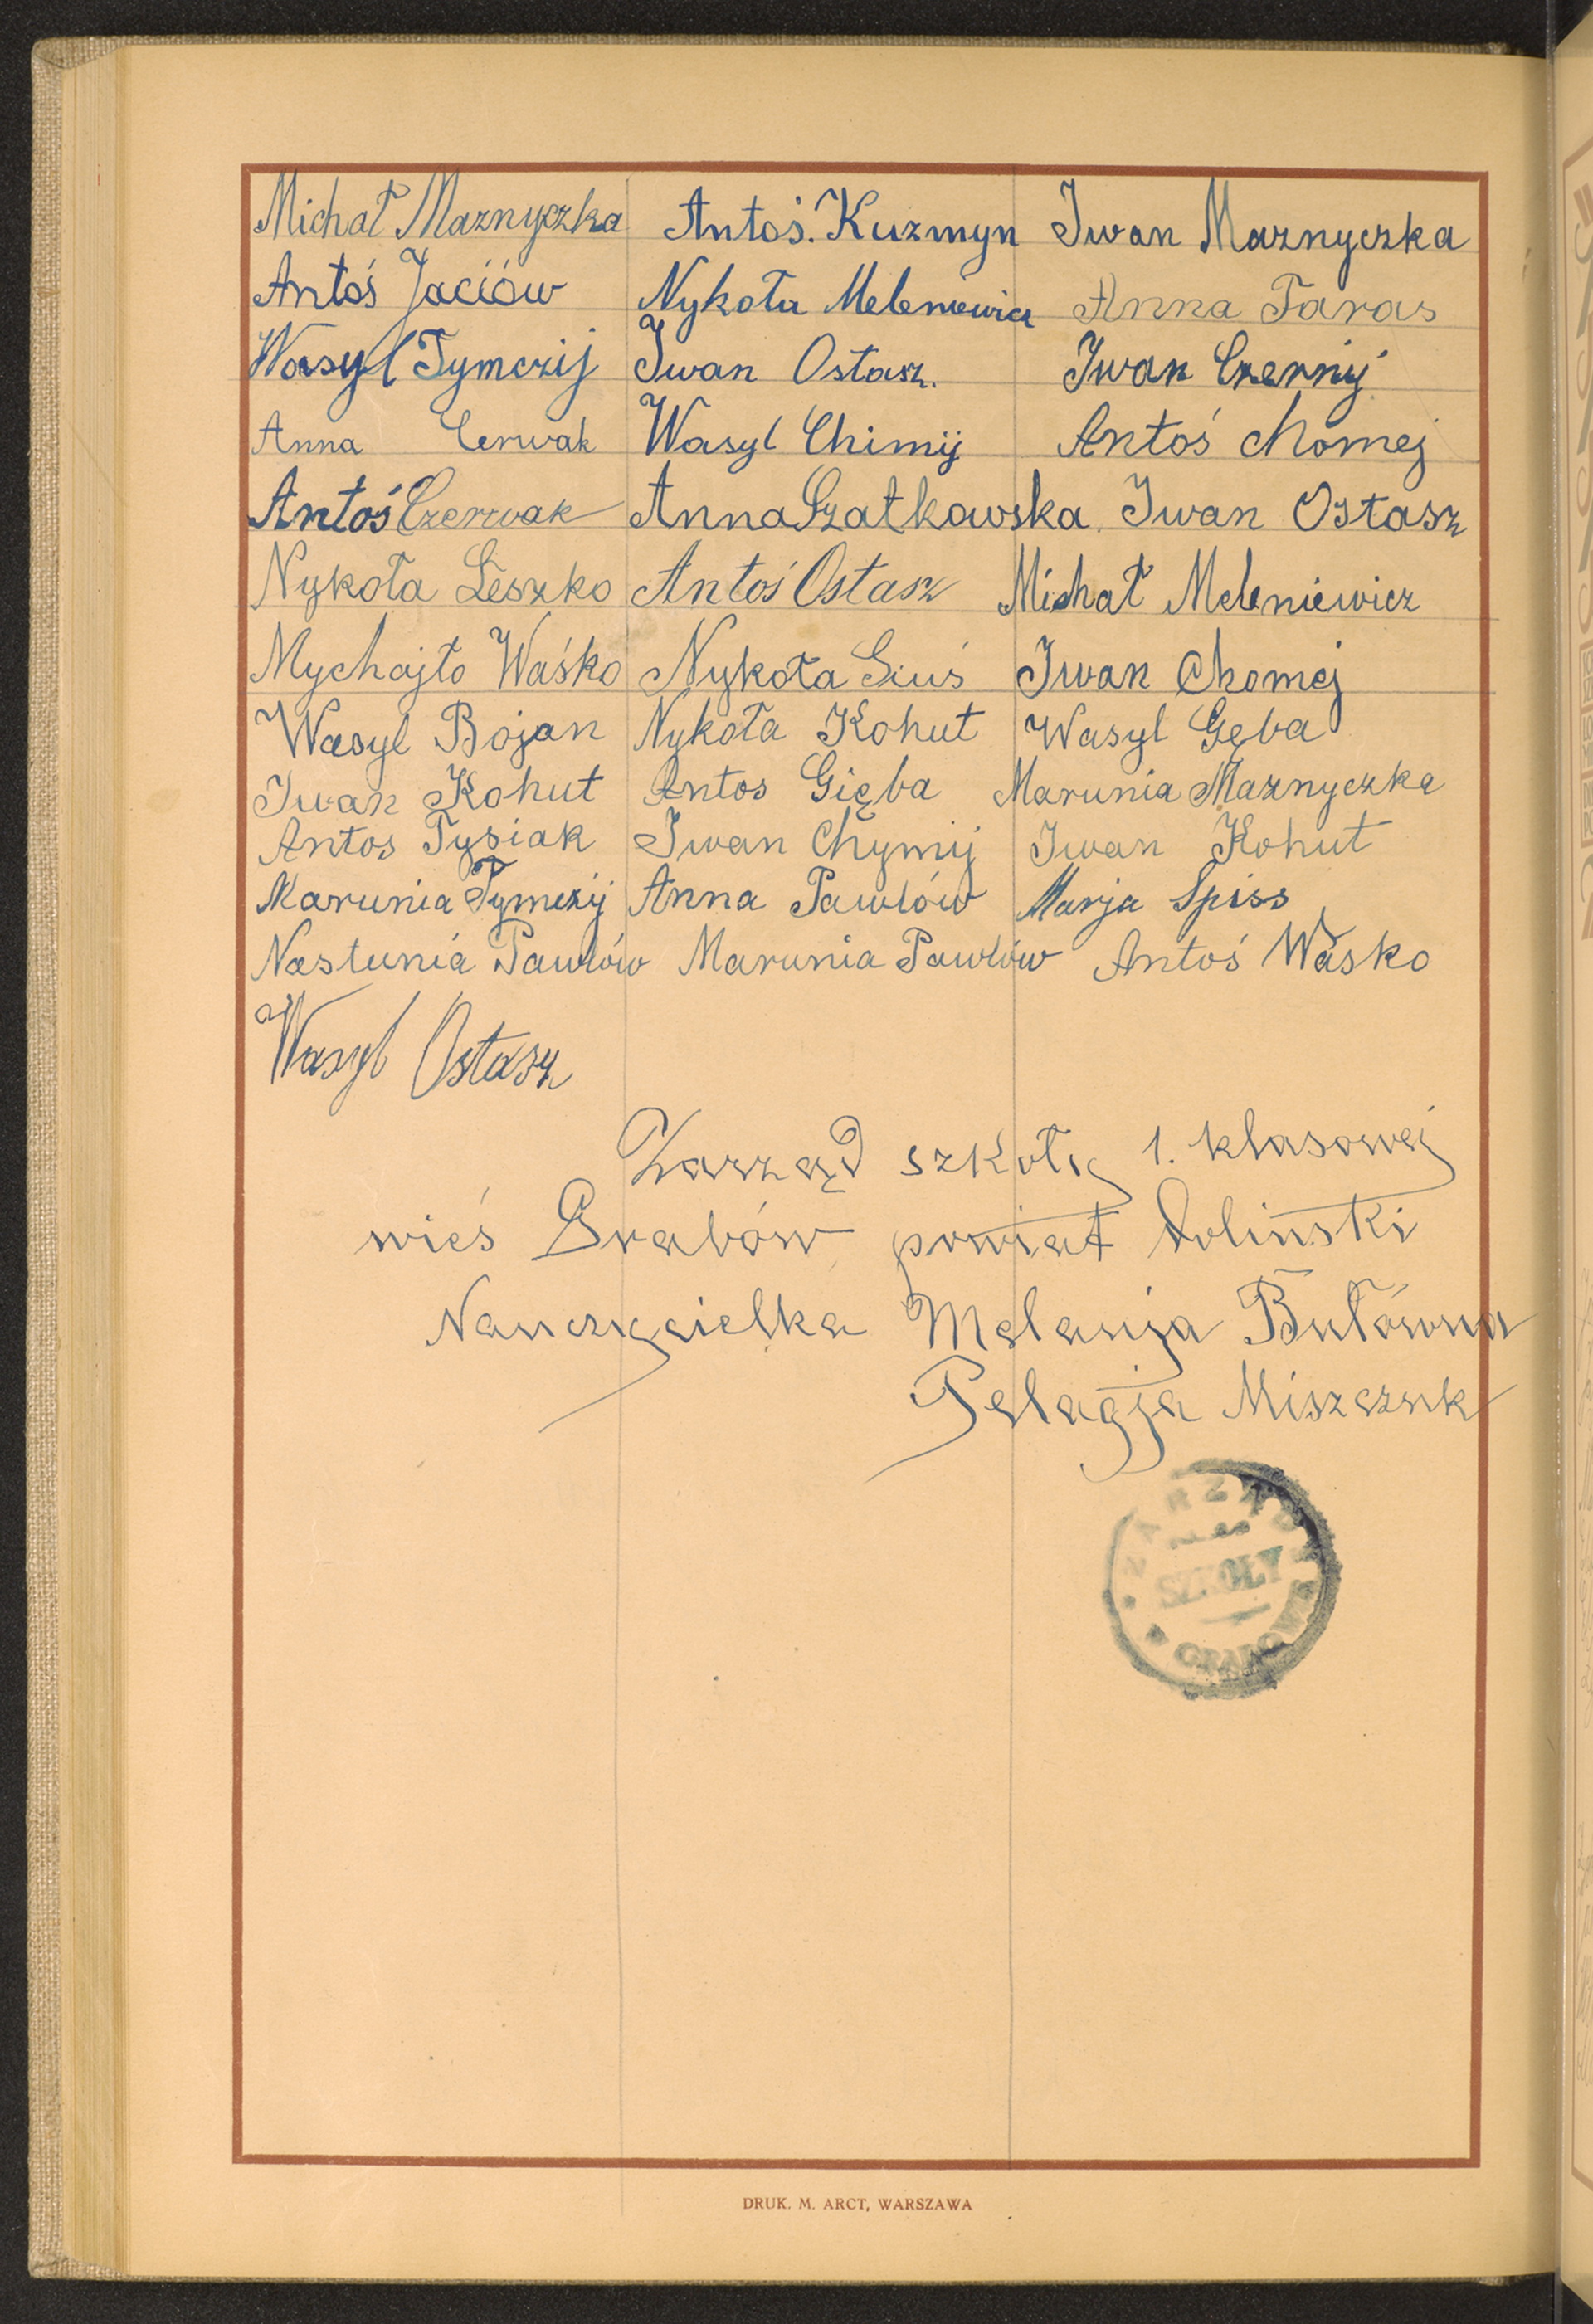 Michał Maznyczka Antoś. Kuzmyn Iwan Maznyczka
Antoś Jaciów Nykoła Meleniewicz Anna Taras
Wasyl Tymczij Iwan Ostasz. Iwan Czernij
Anna Cerwak Wasyl Chimij Antoś Chomej
Antoś Czerwak Anna Szatkowska. Iwan Ostasz
Nykoła Leszko Antoś Ostasz Michał Meleniewicz
Mychajło Waśko Nykoła Giuś Iwan Chomej
Wasyl Bojan Nykoła Kohut Wasyl Gęba
Iwan Kohut Antos Gięba Marunia Maznyczka
Antos Tysiak Iwan Chymij Iwan Kohut
Marunia Tymczij Anna Pawlów Marja Spiss
Nastunia Pawlów Marunia Pawlów Antoś Waśko
Wasyl Ostasz
Zarząd szkoły 1. klasowej
wieś Grabów powiat doliński
Nauczycielka Melanja Bułówna
Pelagja Miszczuk
ZARZĄD
SZKOŁY
DRUK. M. ARCT, WARSZAWA